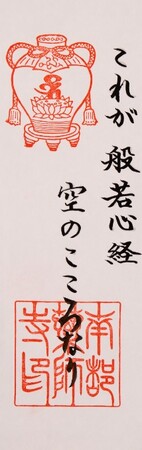 これが般若心経
空のこころなり
南部
薬師
寺印